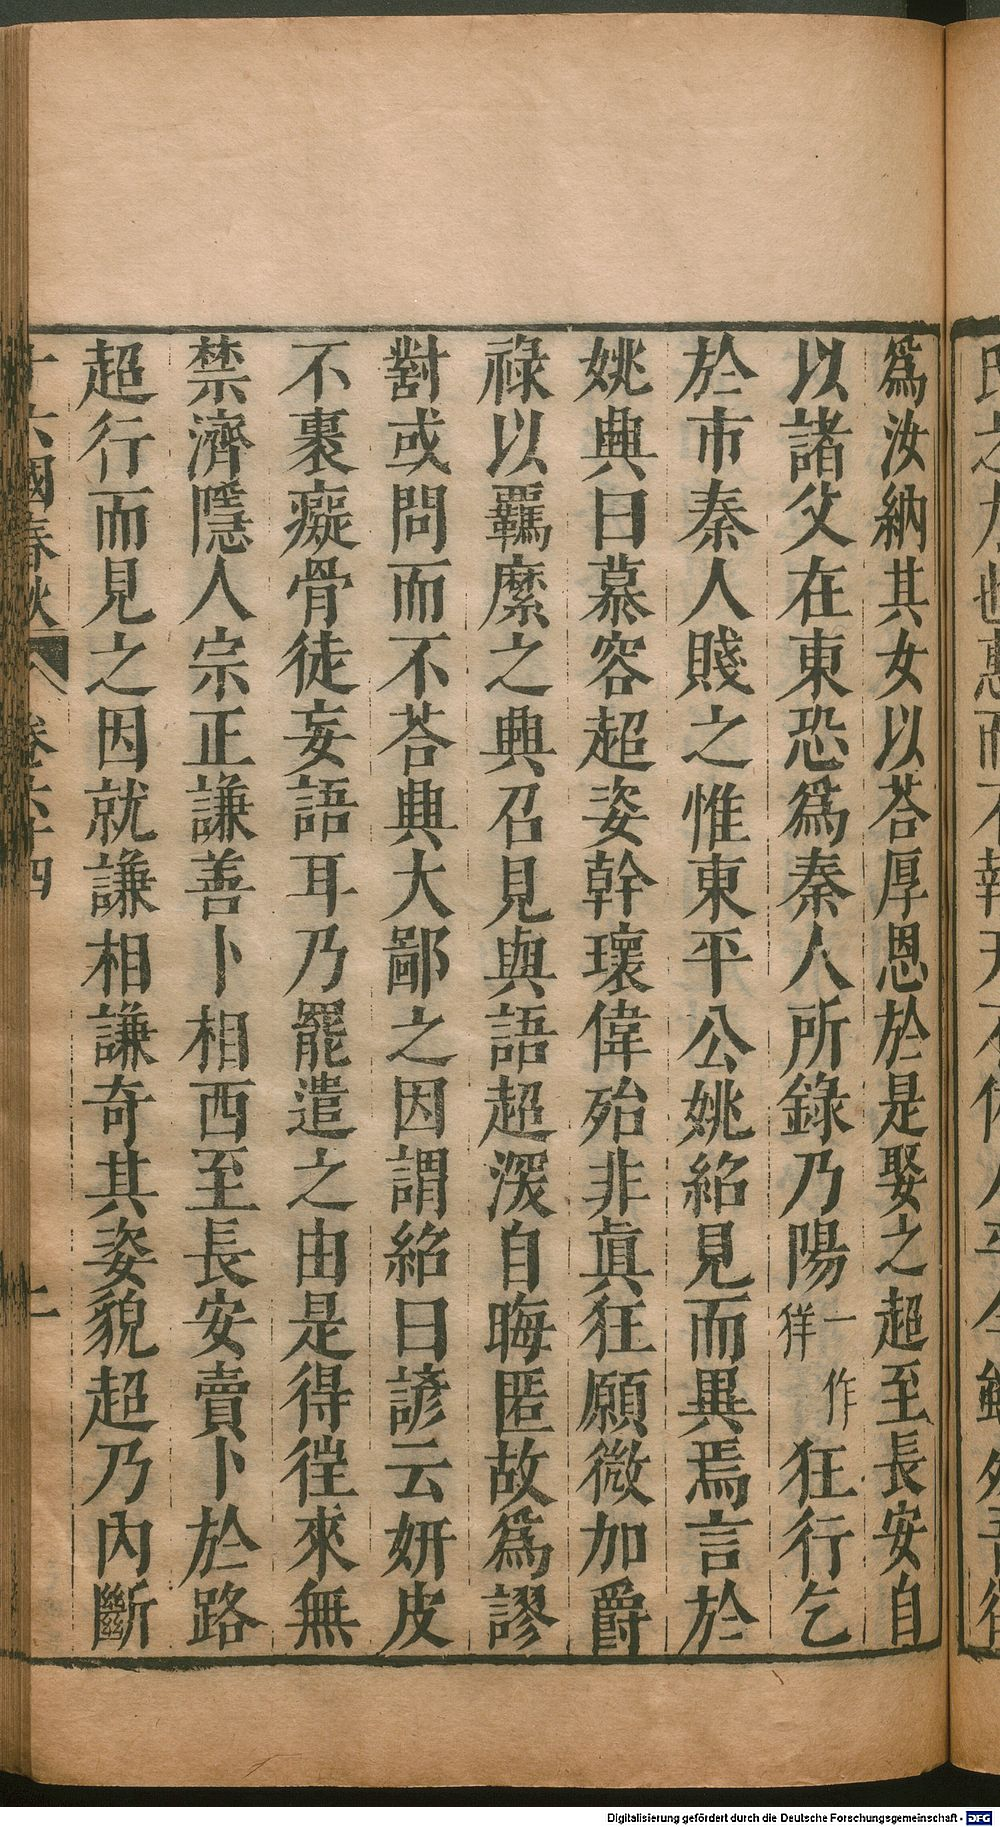 為汝納其女以荅厚恩於是娶之超至長安自
以諸父在東恐為秦人所錄乃陽一作狂行乞
佯
於市秦人賤之惟東平公姚紹見而異焉言於
姚興曰慕容超姿幹瓌偉殆非眞狂願微加爵
祿以羈縻之興召見與語超深自晦匿故為謬
對或問而不荅興大鄙之因謂紹曰諺云妍皮
不裹癡骨徒妄語耳乃罷遣之由是得徃來無
禁濟隱人宗正謙善卜相西至長安賣卜於路
超行而見之因就謙相謙奇其姿貌超乃內斷
十六國春秋 卷六十四 二
Digitalisierung gefördert durch die Deutsche Forschungsgemeinschaft - DFG